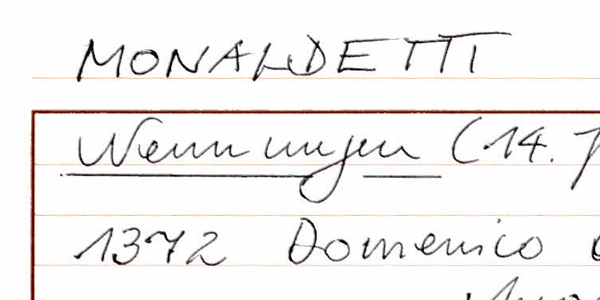 MONALDETTI
Nennungen (14. J
1372 Domenico